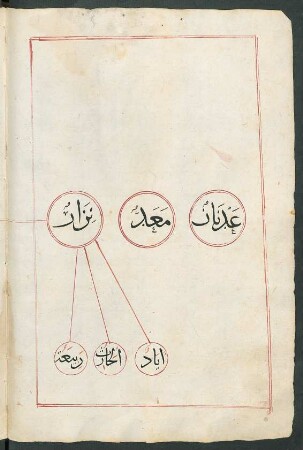 عَدْنَان مَعَدّ نِزَار
اياد الحارث ربيعة